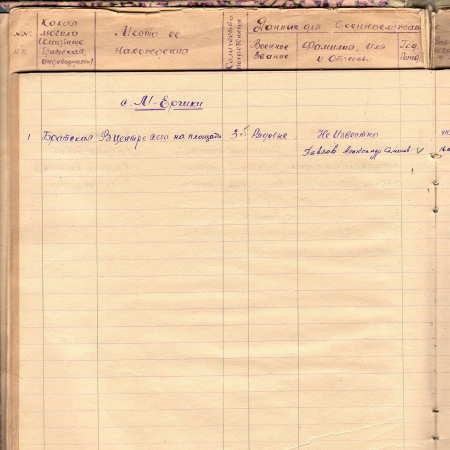 №№ п.п.
Какая могила (Кладбище Братская, индивидуальн.)
Место ее нахождения
Количество
Данные для военнослужащ
Воинское звание
Фамилия, имя и Отчество
Год рожд
с. М-Ерчики
1 Братская В центре села на площади 3 Рядовые Не Известно
Павлов Александр